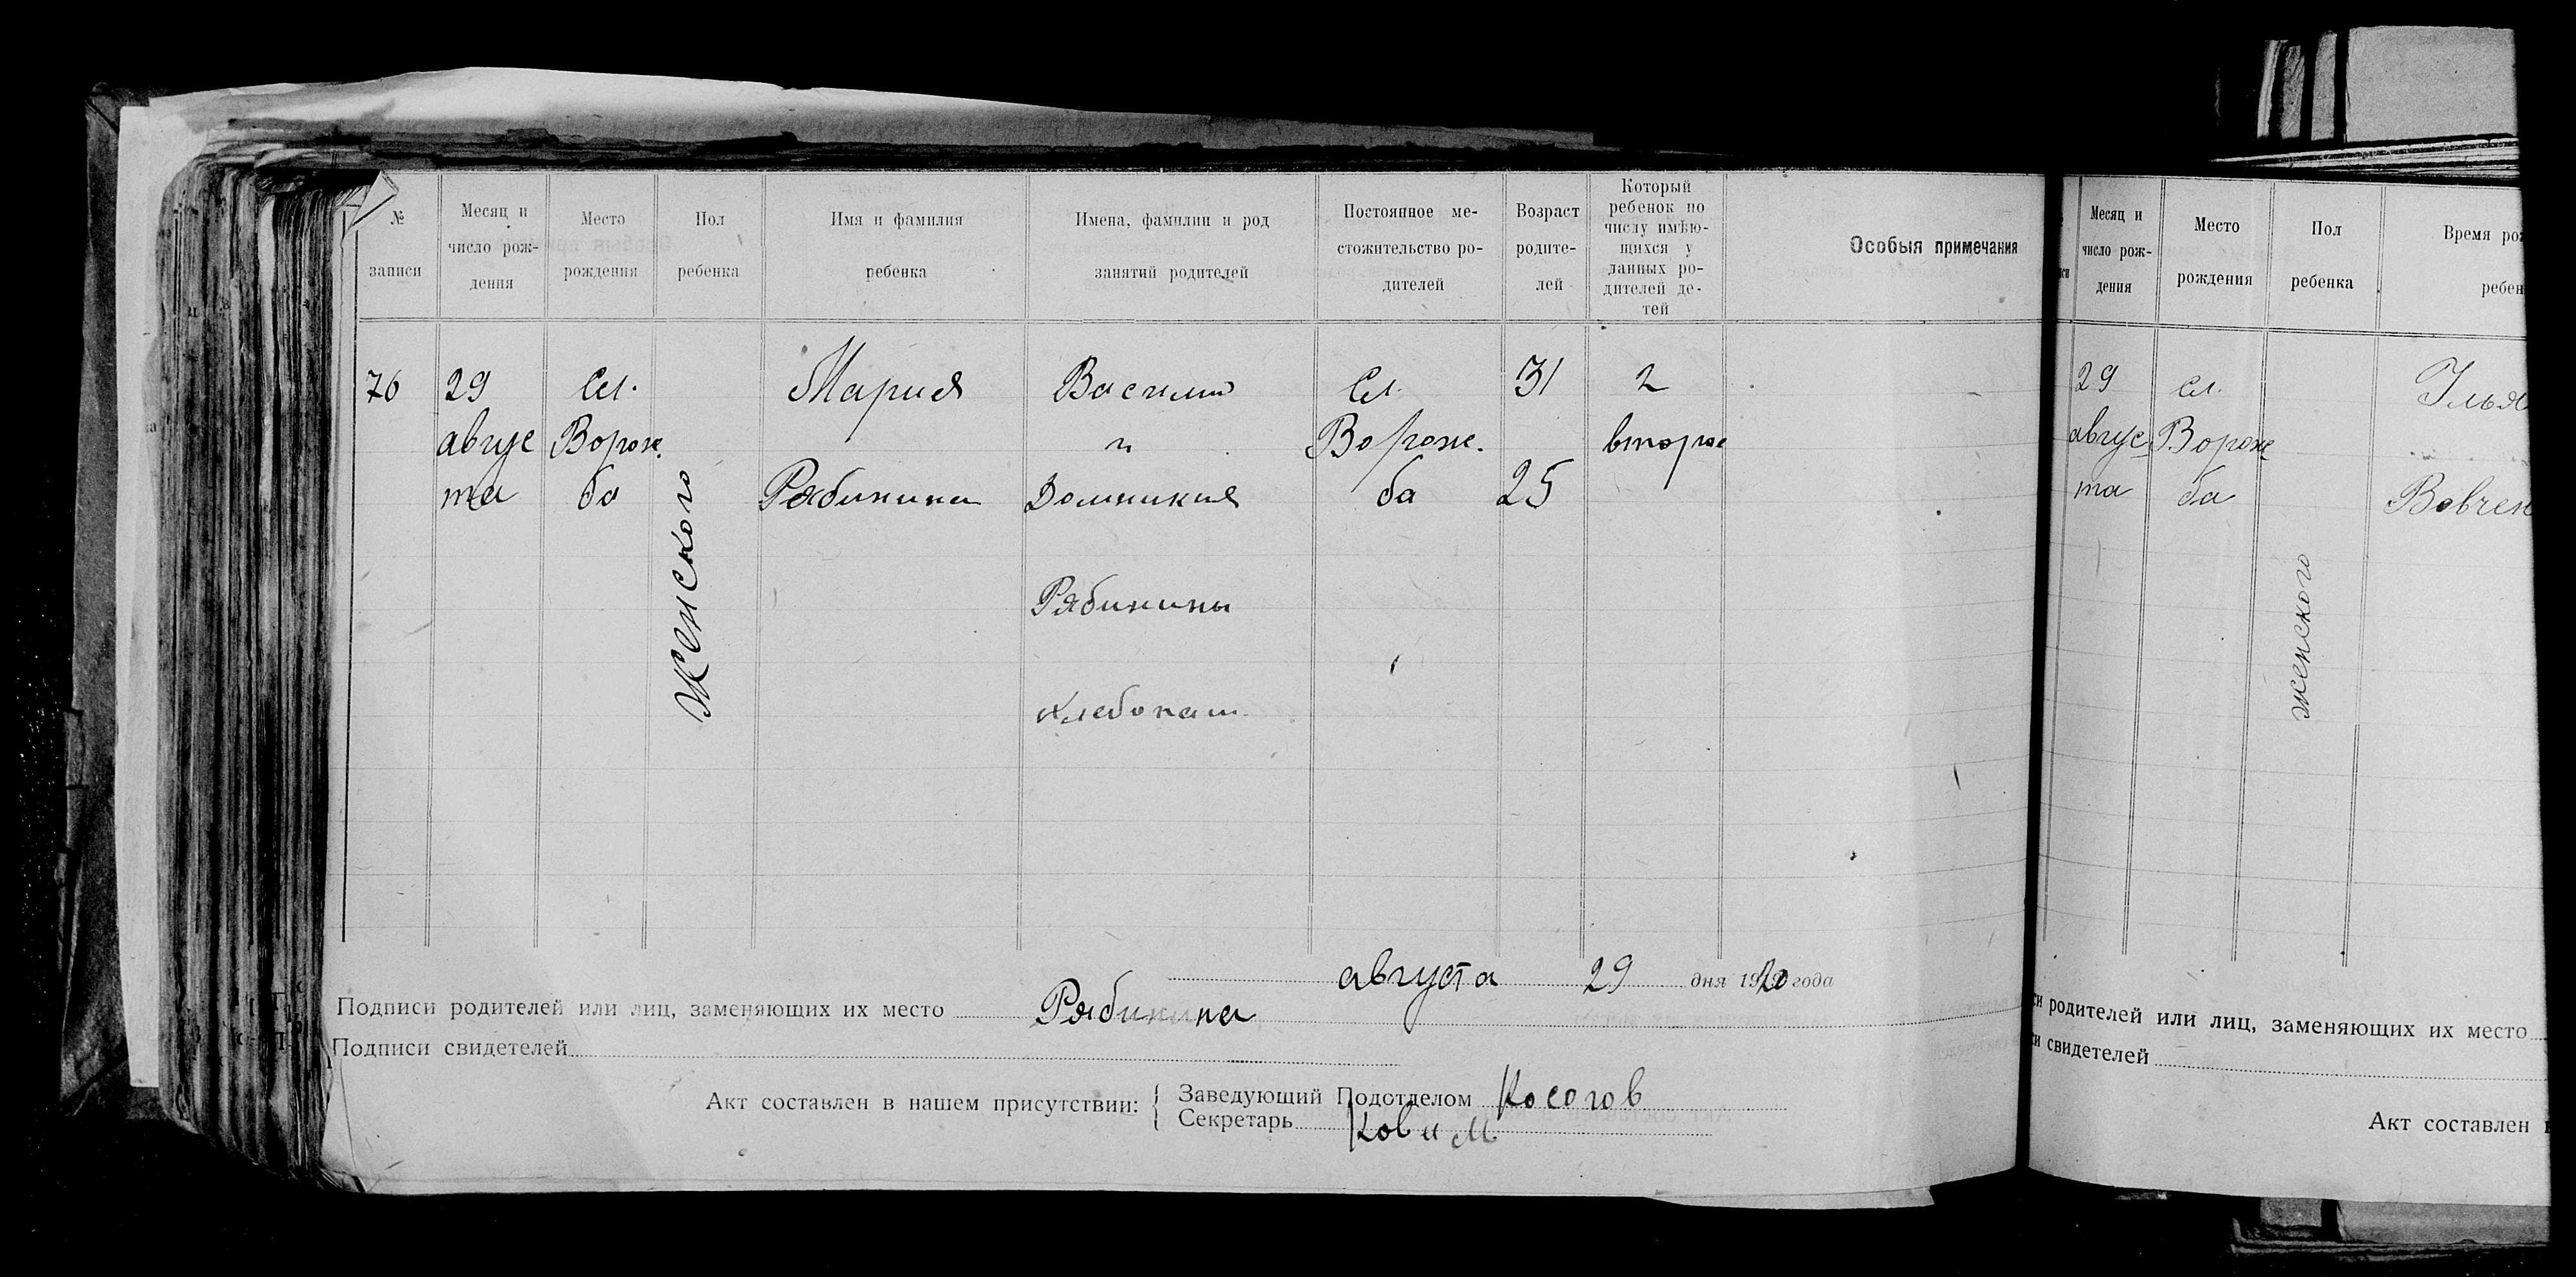 № записи
Месяц и число рож-дения
Место рождения
Пол ребенка
Имя и фамилия ребенка
Имена, фамилии и род занятий родителей
Постоянное ме-стожительство ро-дителей
Возраст родите-лей
Который ребенок по числу имѣю-щихся у данных ро-дителей де-тей
Особыя примечания
76
29
авгус
та
Сл.
Ворож.
ба
женского
Мария
Рябинина
Василий
и
Домникия
Рябинины
хлебопаш.
Сл.
Ворож.
ба
31
25
2
второе
августа 29 дня 1920 года
Подписи родителей или лиц, заменяющих их место Рябинина
Подписи свидетелей
Акт составлен в нашем присутствии:
Заведующий Подотделом Косогов
Секретарь
Месяц и число рож-дения
Место рождения
Пол ребенка
Время
29
авгус
та
сл.
Ворож
ба
женского
Илья
родителей или лиц, заменяющих их место
свидетелей
Акт составлен